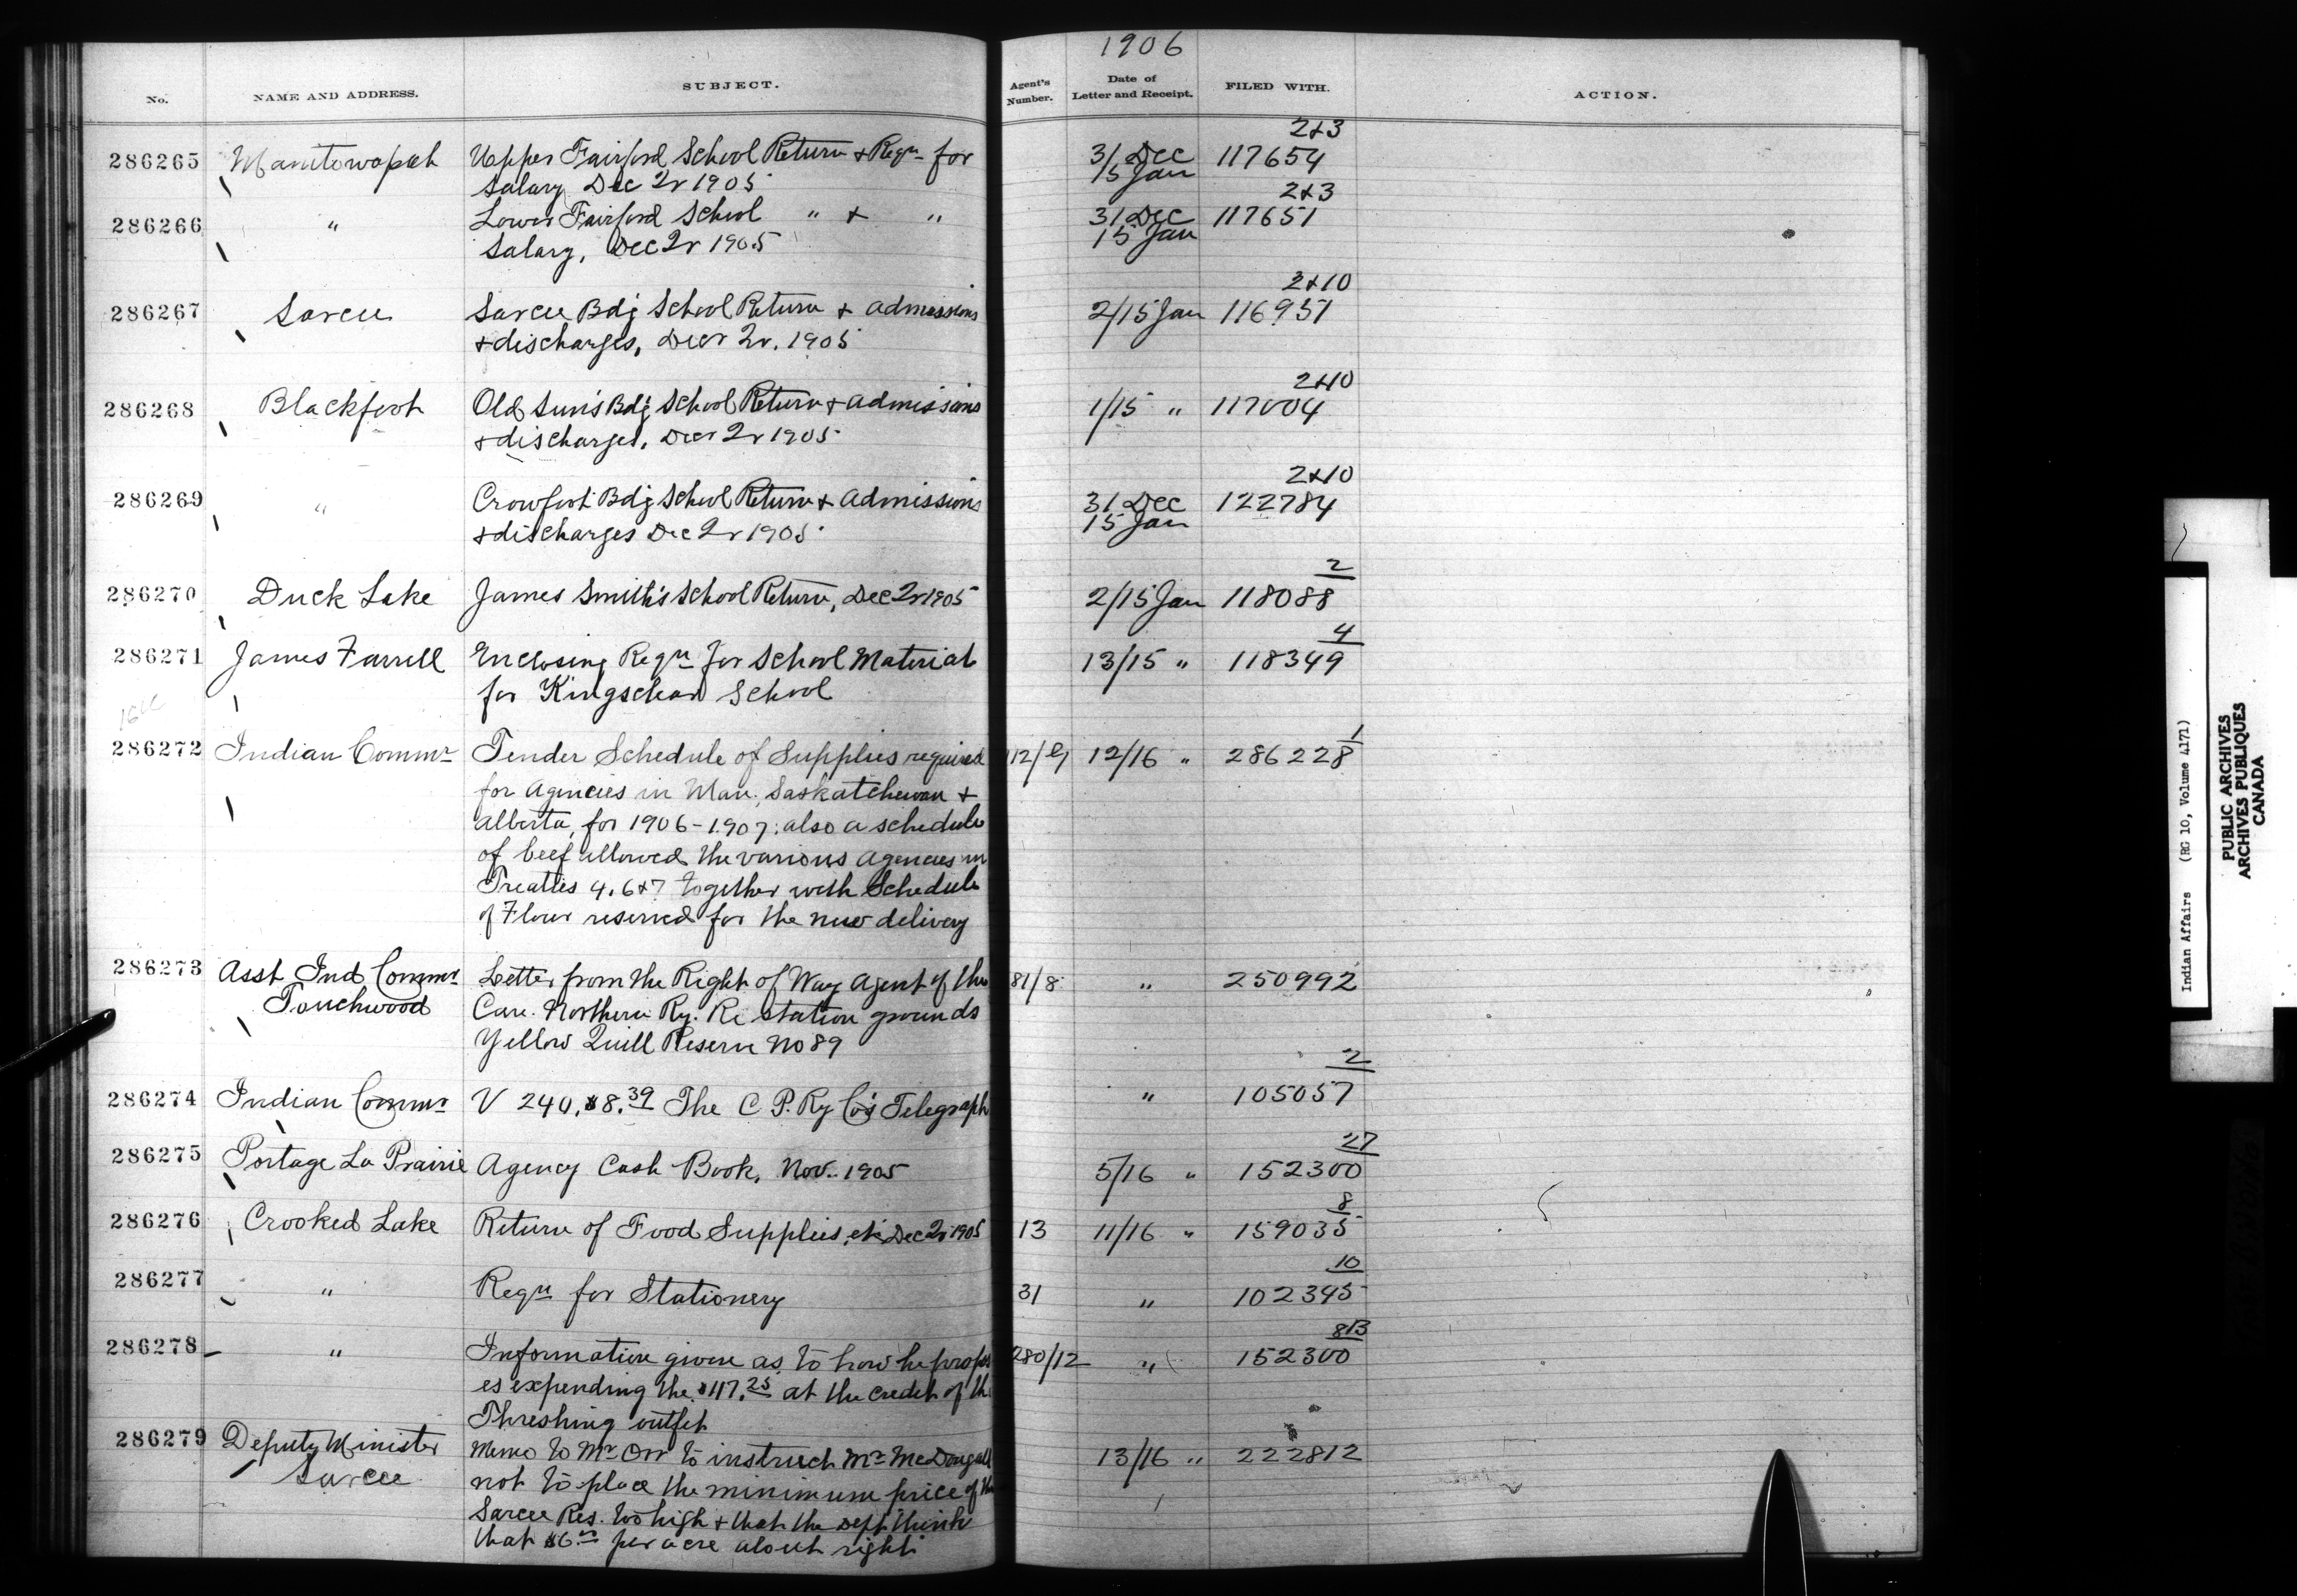 1906
No. NAME AND ADDRESS. SUBJECT. Agent's Number. Date of Letter and Receipt. FILED WITH. ACTION.
2+3
286265 Manitowapah Upper Fairford School Return + Reqn for 31 Dec 117654
Salary Dec Qr 1905 15 Jan
2+3
286266 " Lower Fairford School " + " 31 Dec 117651
Salary, Dec Qr 1905 15 Jan
2+10
286267 Sarcee Sarcee Bdg School Return + admissions 2/15 Jan 116951
+ discharges, Decr Qr. 1905
2+10
286268 Blackfoot Old Sun's Bdg School Return + admissions 1/15 " 117004
+ discharges, Decr Qr 1905
2+10
286269 " Crowfoot Bdg School Return + admissions 31 Dec 122784
+ discharges Dec Qr 1905 15 Jan
2
286270 Duck Lake James Smith's School Return, Dec Qr 1905 2/15 Jan 118088
4
286271 James Farrell Enclosing Reqn for School Material 13/15 " 118349
for School
1
286272 Indian Commr Tender Schedule of Supplies required 12/16 " 286228
for Agencies in Man., Saskatchewan +
Alberta, for 1906-1907: also a schedule
of beef allowed the various agencies in
Treaties 4, 6 + 7 together with Schedule
of Flour reserved for the new delivery
286273 Asst Ind Commr Letter from the Right of Way Agent of the 81/8 " 250992
Touchwood Can. Northern Ry. Re Station grounds
Yellow Quill Reserve No 89
2
286274 Indian Commr V 240, $8.39 The C P. Ry Co's Telegraph " 105057
27
286275 Portage La Prairie Agency Cash Book, Nov. 1905 5/16 " 152300
8
286276 Crooked Lake Return of Food Supplies, etc Dec Qr 1905 13 11/16 " 159035
10
286277 " Reqn for Stationery 31 " 102395
8B
286278 " Information given as to how he propos 280/12 " 152300
es expending the $117.25 at the credit of the
Threshing outfit
286279 Deputy Minister Memo to Mr Orr to instruct Mr McDougall 13/16 " 222812
Sarcee not to place the minimum price of the
Sarcee Res. too high + that the Dept think
that $6.00 per acre about right
Indian Affairs (RG 10, Volume 4171)
PUBLIC ARCHIVES
ARCHIVES PUBLIQUES
CANADA